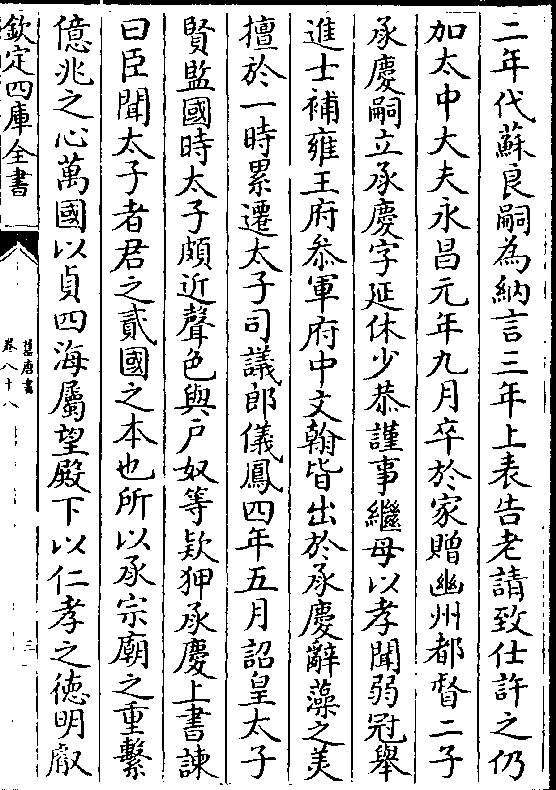 二年代蘇良嗣為納言三年上表告老請致仕許之仍
加太中大夫永昌元年九月卒於家贈幽州都督二子
承慶嗣立承慶字延休少恭謹事繼母以孝聞弱冠舉
進士補雍王府叅軍府中文翰皆出於承慶辭藻之美
擅於一時累遷太子司議郎儀鳳四年五月詔皇太子
賢監國時太子頗近聲色與户奴等欵狎承慶上書諫
曰臣聞太子者君之貳國之本也所以承宗廟之重繫
億兆之心萬國以貞四海屬望殿下以仁孝之徳明叡
欽定四庫全書
舊唐書
卷八十八
三